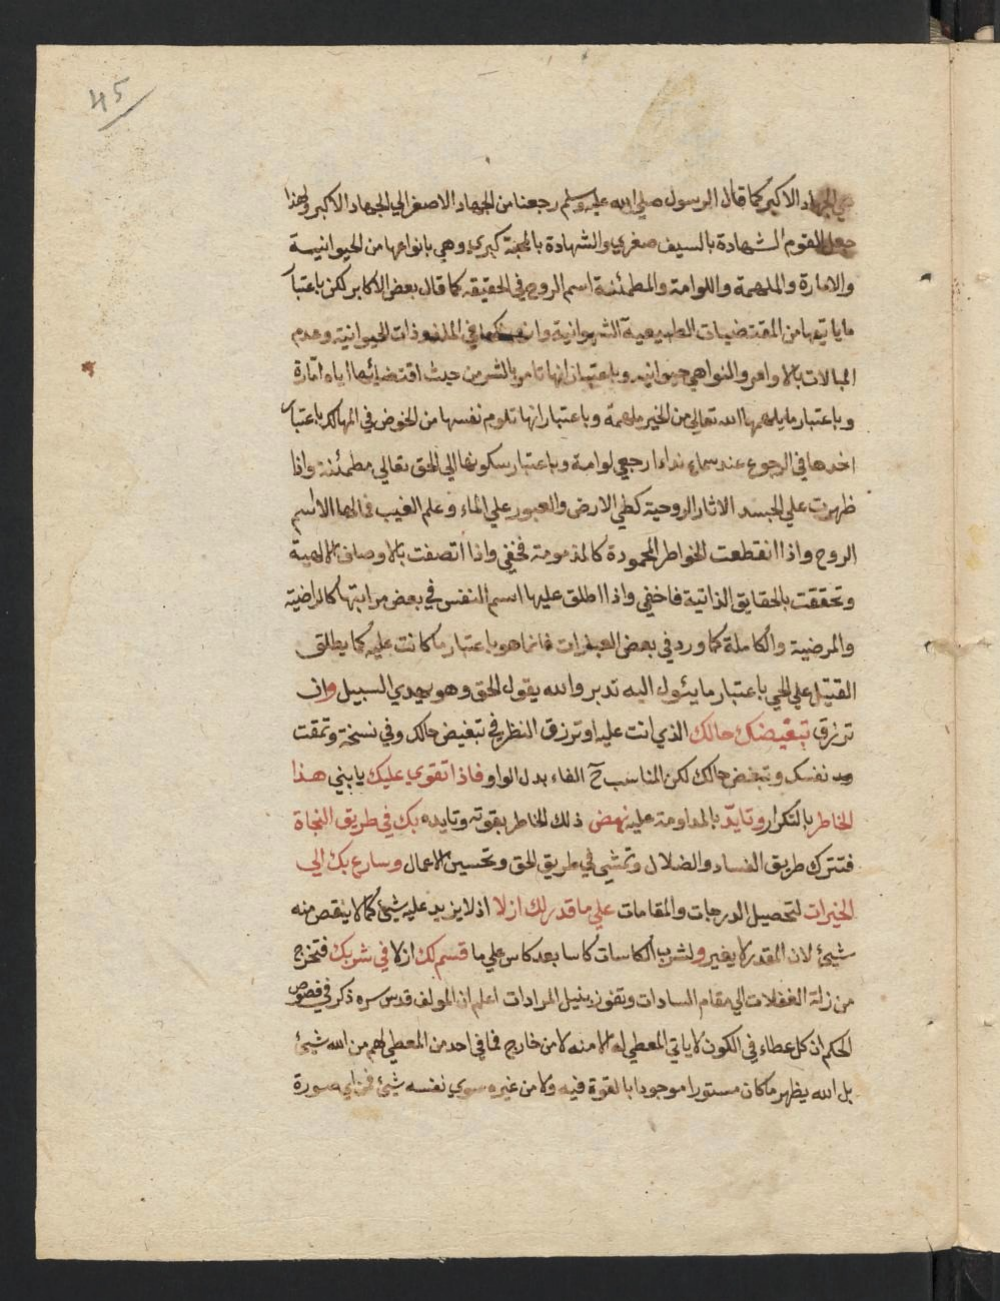 45
هي الجهاد الاكبر كما قال الرسول صلي الله عليه وسلم رجعنا من الجهاد الاصغر الي الجهاد الاكبر ولهذا
جعل القوم الشهادة بالسيف صغري والشهادة بالمحبة كبري وهي بانواعها من الحيوانية
والامارة والملهمة واللوامة والمطمئنة اسم الروح في الحقيقة كما قال بعض الاكابر لكن باعتبار
ما ياتيها من المقتضيات الطبيعية الشهوانية وانهماكها في الملذوذات الحيوانية وعدم
المبالات بالاوامر والنواهي حيوانية وباعتبار انها تامر بالشر من حيث اقتضائها اياه امارة
وباعتبار ما يلهمها الله تعالي من الخير ملهمة وباعتبار انها تلوم نفسها من الخوض في المهالك باعتبار
اخدها في الرجوع عند سماع نداء ارجعي لوامة وباعتبار سكونها الي الحق تعالي مطمئنة واذا
ظهرت علي الجسد الاثار الروحية كطي الارض والعبور علي الماء وعلم الغيب فمالها الا اسم
الروح واذا انقطعت الخواطر المحمودة كالمذمومة فخفي واذا اتصفت بالاوصاف الالهية
وتحققت بالحقايق الذاتية فاخفي واذا اطلق عليها اسم النفس في بعض مراتبها كالراضية
والمرضية والكاملة كما ورد في بعض العبارات فانما هو باعتبار ما كانت عليه كما يطلق
القتيل علي الحي باعتبار ما يئول اليه تدبر والله يقول الحق وهو يهدي السبيل وان
ترزق تبغيضك حالك الذي انت عليه او ترزق النظر في تبغيض حالك وفي نسخة وتمقت
نفسك وتبغض حالك لكن المناسب ح الفاء بدل الواو فاذا تقوي عليك يا بني هذا
الخاطر بالتكرار وتايد بالمداومة عليه نهض ذلك الخاطر بقوته وتايده بك في طريق النجاة
فتترك طريق الفساد والضلال وتمشي في طريق الحق وتحسين الاعمال وسارع بك الي
الخيرات لتحصيل الدرجات والمقامات علي ما قدر لك ازلا اذ لا يزيد عليه شيئ كما لا ينقص منه
شيئ لان المقدر لا يغير ولشرب الكاسات كاسا بعد كاس علي ما قسم لك ازلا في شربك فتخرج
من زلة الغفلات الي مقام السادات وتفوز بنيل المرادات اعلم ان المولف قدس سره ذكر في فصوص
الحكم ان كل عطاء في الكون لا ياتي المعطي له الا منه لا من خارج فما في احد من المعطي لهم من الله شيئ
بل الله يظهر ما كان مستورا موجودا بالقوة فيه ولا من غيره سوي نفسه شيئ فمن اي صورة